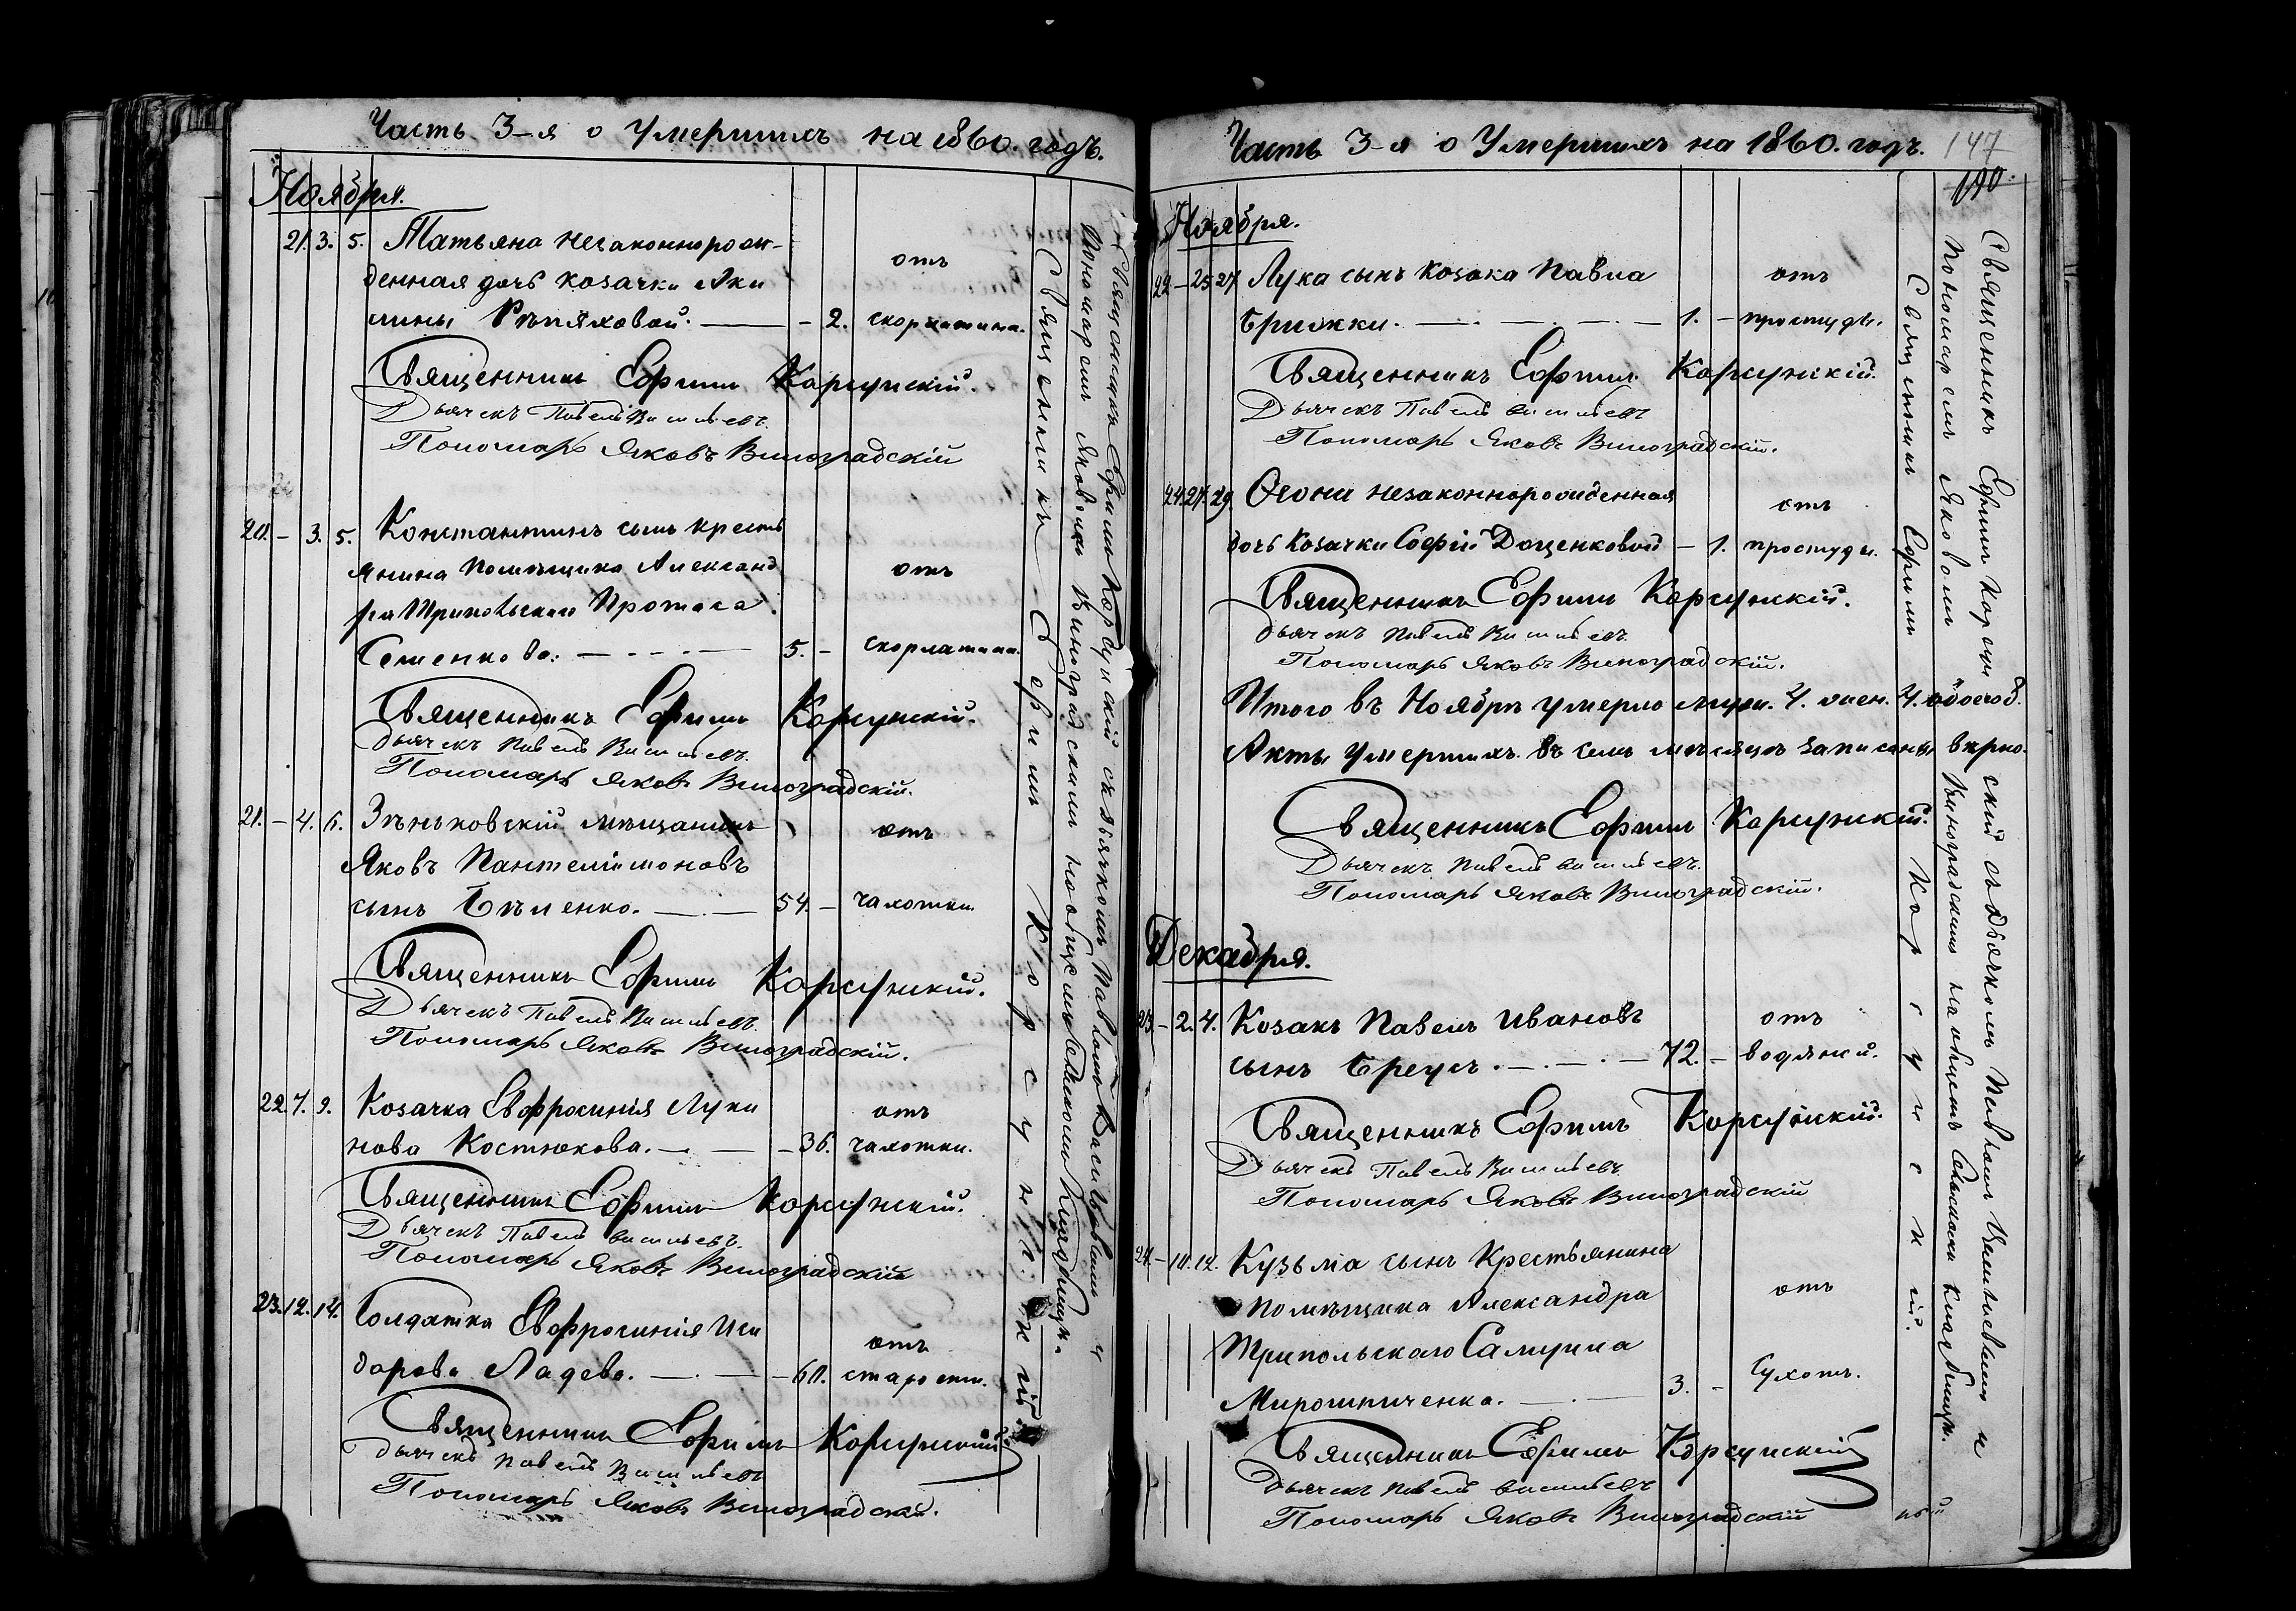 Часть 3-я о Умершихъ на 1860. годъ.
Ноября.
21. 3. 5. Татьяна незаконнорож-
денная дочь козачки Аки
лины Рѣпяховой. — - 2. отъ скорлатина.
Священникъ Ефимъ Корсунскій.
Дьячекъ Павелъ Васильевъ.
Пономарь Яковъ Виноградскій
20. - 3. 5. Константинъ сынъ кресть
янина помѣщика Александ
ра Трипольскаго Протаса отъ
Семенкова. — 5. - скорлатина.
Священникъ Ефимъ Корсунскій.
Дьячекъ Павелъ Васильевъ.
Пономарь Яковъ Виноградскій.
21. - 4. 6. Зѣньковскій мѣщанинъ отъ
Яковъ Пантелимоновъ
сынъ Бѣленко. — 54. - чахотки.
Священникъ Ефимъ Корсунскій.
Дьячекъ Павелъ Васильевъ.
Пономарь Яковъ Виноградскій.
22. 7. 9. Козачка Евфросинія Луки отъ
нова Костюкова. — - 36. чахотки.
Священникъ Ефимъ Корсунскій.
Дьячекъ Павелъ Васильевъ.
Пономарь Яковъ Виноградскій
23. 12. 14. Солдатка Евфросинія Иси отъ
дорова Ладева. — - 60. старости.
Священникъ Ефимъ Корсунскій
Дьячекъ Павелъ Васильевъ
Пономарь Яковъ Виноградскій.
Священникъ Ефимъ Корсунскій
Священникъ Ефимъ Корсунскій съ дьячкомъ Павломъ Васильевымъ и
пономаремъ Яковомъ Виноградскимъ на общемъ сельскомъ кладбищѣ.
Часть 3-я о Умершихъ на 1860. годъ. 147
190.
Ноября.
22 - 25 27 Лука сынъ козака Павла отъ
Брижки. — 1. - простуды.
Священникъ Ефимъ Корсунскій.
Дьячекъ Павелъ Васильевъ
Пономарь Яковъ Виноградскій.
24. 27. 29. незаконнорожденная отъ
дочь козачки Софіи Доценковой - 1. простуды.
Священникъ Ефимъ Корсунскій.
Дьячекъ Павелъ Васильевъ.
Пономарь Яковъ Виноградскій.
Итого въ Ноябрѣ умерло муж. 4. жен. 4. обоего 8.
Акты умершихъ въ семъ мѣсяцѣ записаны вѣрно.
Священникъ Ефимъ Корсунскій.
Дьячекъ Павелъ Васильевъ.
Пономарь Яковъ Виноградскій.
Декабря.
23. - 2. 4. Козакъ Павелъ Ивановъ отъ
сынъ Бреусъ. — 72. - водянки.
Священникъ Ефимъ Корсунскій.
Дьячекъ Павелъ Васильевъ.
Пономарь Яковъ Виноградскій
24. - 10. 12. Кузьма сынъ крестьянина
помѣщика Александра отъ
Трипольскаго Самуила
Мирошниченка. — 3. - сухотъ.
Священникъ Ефимъ Корсунскій
Дьячекъ Павелъ Васильевъ
Пономарь Яковъ Виноградскій
Священникъ Ефимъ Корсунскій.
Священникъ Ефимъ Корсунскій съ дьячкомъ Павломъ Васильевымъ и
пономаремъ Яковомъ Виноградскимъ на общемъ сельскомъ кладбищѣ.